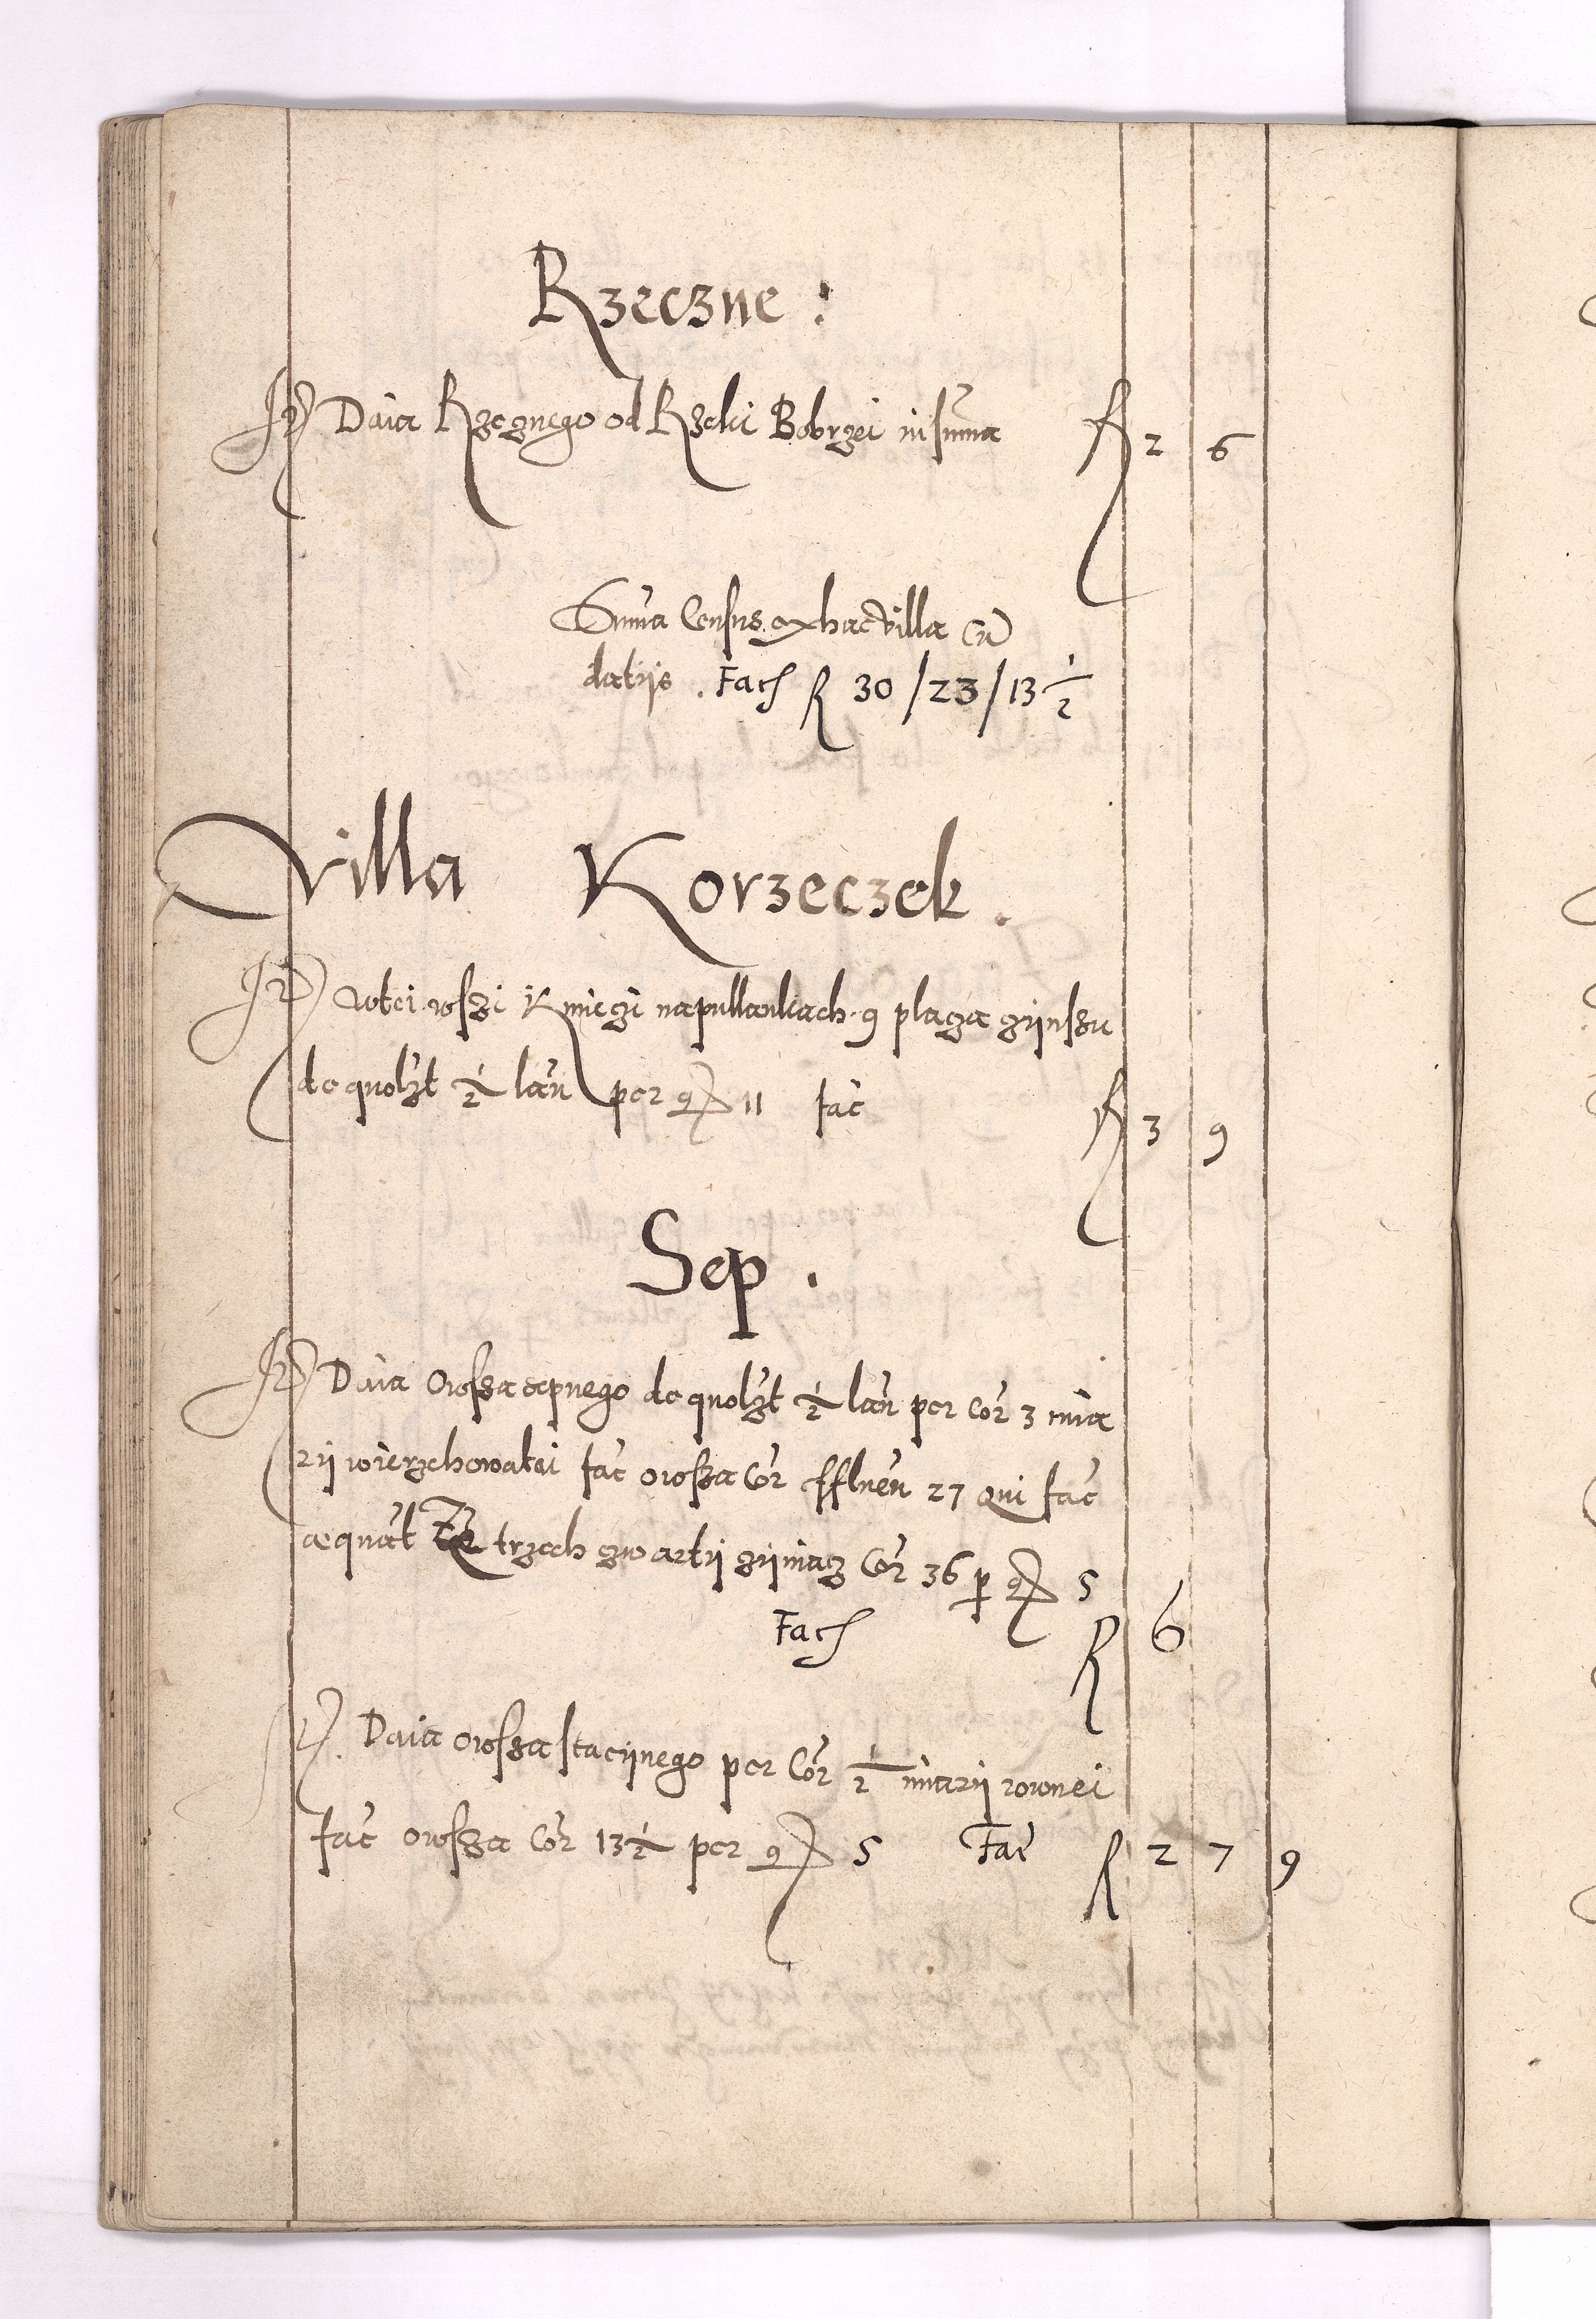 Rzeczne :
It Daia Rzecznego od Rzeki Bobrzei in suma R 2 6
Suma Census ex hac villa cu
datijs . Facs R 30 / 23 / 13 1/2
Villa Korzeczek .
It W tei wszi Kmieczi na pullankach 9 placza czijnszu
de quolzt 1/2 lan per g 11 fac R 3 9
Sep .
It Daia Owsza sepnego de quolzt 1/2 lan per Cor 3 mia
rij wierzchowatei fac owsza Cor 27 qui fac
aequat trzech czwartij czijniacz Cor 36 p g 5
Facs R 6
It Daia owsza stacijnego per Cor 1/2 miarij rownei
fac owsza Cor 13 1/2 per g 5 Fac R 2 7 9